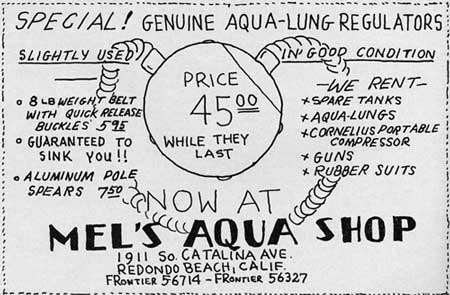 SPECIAL! GENUINE AQUA-LUNG REGULATORS
SLIGHTLY USED
IN GOOD CONDITION
PRICE
45.00
WHILE THEY
LAST
8 LB WEIGHT BELT
WITH QUICK RELEASE
BUCKLES 5.95
GUARANTEED TO
SINK YOU!!
ALUMINUM POLE
SPEARS 7.50
-WE RENT-
+ SPARE TANKS
+ AQUA-LUNGS
+ CORNELIUS PORTABLE
COMPRESSOR
+ GUNS
+ RUBBER SUITS
NOW AT
MEL'S AQUA SHOP
1911 SO. CATALINA AVE.
REDONDO BEACH, CALIF.
FRONTIER 56714 - FRONTIER 56327